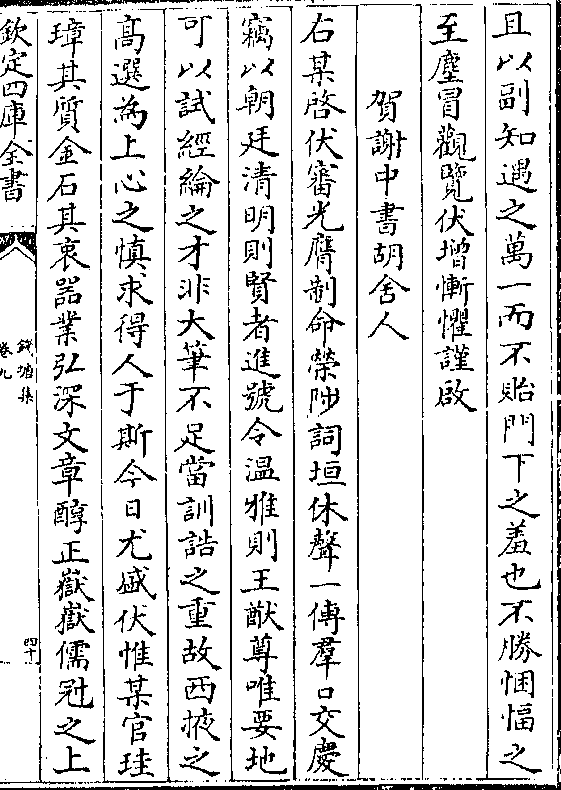 且以副知遇之萬一而不貽門下之羞也不勝悃愊之
至塵冒觀覽伏增慚懼謹啟
賀謝中書胡舍人
右某啓伏審光膺制命榮陟詞垣休聲一傳羣口交慶
竊以朝廷清明則賢者進號令温雅則王猷尊唯要地
可以試經綸之才非大筆不足當訓誥之重故西掖之
高選為上心之慎求得人于斯今日尤盛伏惟某官珪
璋其質金石其衷器業弘深文章醇正嶽嶽儒冠之上
欽定四庫全書
錢塘集
卷九
四十